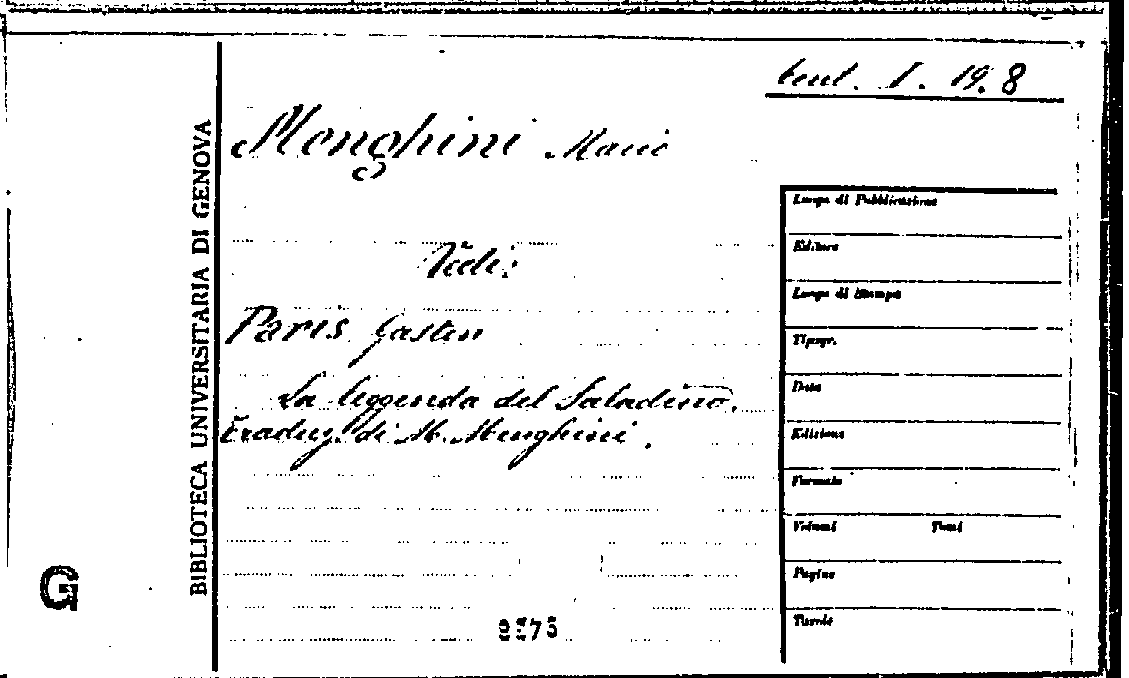 I. 19. 8
Menghini Mario
Vedi:
Paris Gaston
La leggenda del Saladino.
traduz. di M. Menghini.
BIBLIOTECA UNIVERSITARIA DI GENOVA
Luogo di Pubblicazione
Editore
Luogo di Stampa
Tipogr.
Data
Edizione
Formato
Volumi Tomi
Pagine
Tavole
G